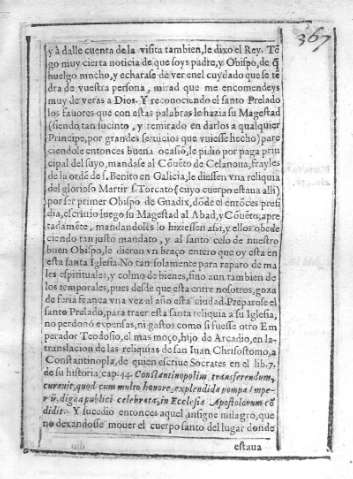 367
y à dalle cuenta de la visita tambien, le dixo el Rey. Tẽ
go muy cierta noticia de que soys padre, y Obispo, de q̃
huelgo mucho, y echarase de ver en el cuydado que se tẽ
dra de vuestra persona, mirad que me encomendeys
muy de veras a Dios. Y reconociendo el santo Prelado
los fauores que con estas palabras le hazia su Magestad
(siendo tan sucinto, y remirado en darlos a qualquier
Principe, por grandes seruicios que vuiesse hecho) pare
ciendole entonces buena ocasiõ, le pidio por paga prin
cipal del suyo, mandase al Cõuẽto de Celanoua, frayles
de la ordẽ de s. Benito en Galicia, le diessen vna reliquia
del glorioso Martir s. Torcato (cuyo cuerpo estaua alli)
por ser primer Obispo de Guadix, dõde el entõces presi
dia, escriuio luego su Magestad al Abad, y Cõuẽto, apre
tadamẽte, mandandoles lo hiziessen assi, y ellos obede
ciendo tan justo mandato, y al santo celo de nuestro
buen Obispo, le dieron vn braço entero que oy esta en
esta santa Iglesia. No tan solamente para reparo de ma
les espirituales, y colmo de bienes, sino aun tambien de
los temporales, pues desde que esta entre nosotros, goza
de feria franca vna vez al año esta ciudad. Preparose el
santo Prelado, para traer esta santa reliquia a su Iglesia,
no perdonó expensas, ni gastos como si fuesse otro Em
perador Teodosio, el mas moço, hijo de Arcadio, en la
translacion de las reliquias de san Iuan Chrisostomo, a
Constantinopla, de quien escriue Socrates en el lib. 7.
de su historia, cap. 44. Constantinopolim transferendum,
curauit, quod cum multo honore, explendida pompa Impe-
rii, digna publici celebrata, in Ecclesia Apostolorum cõ
didit. Y sucedio entonces aquel insigne milagro, que
no dexandose mouer el cuerpo santo del lugar donde
estaua